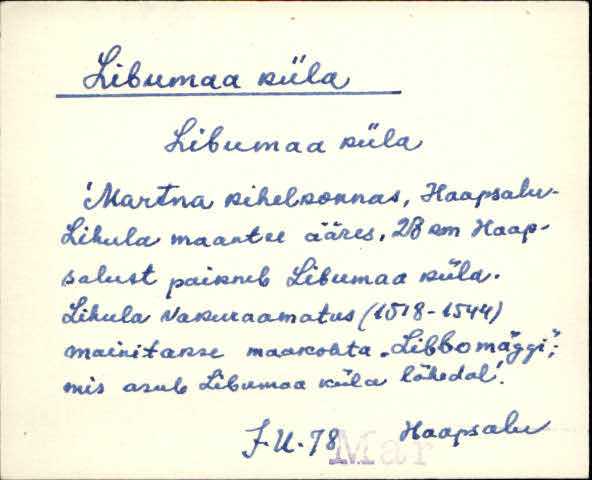 Libumaa küla
Libumaa küla
'Martna kihelkonnas, Haapsalu-
Lihula maantee ääres, 28 km Haap-
salust paikneb Libumaa küla.
Lihula Vakuraamatus (1518-1544)
mainitakse maakohta „Libbomäggi",
mis asub Libumaa küla lähedal'.
J.U.78 Haapsalu
Mar